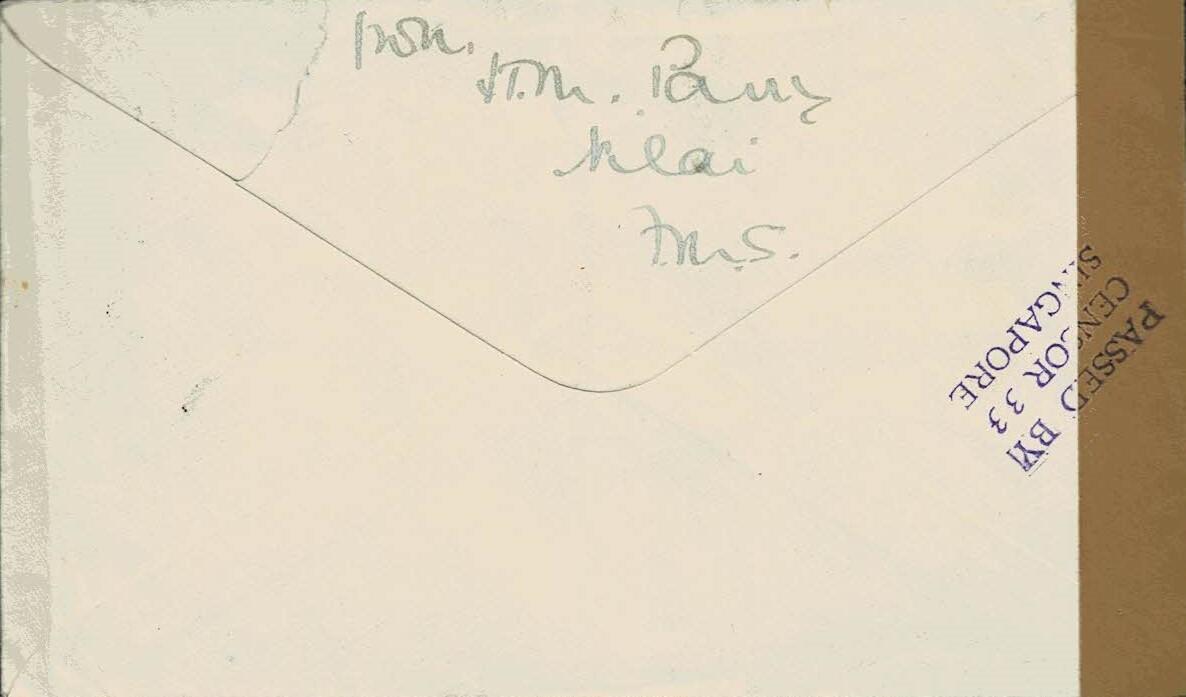 from.
H.M. Parry
Nilai
F.M.S.
PASSED BY
CENSOR 33
SINGAPORE